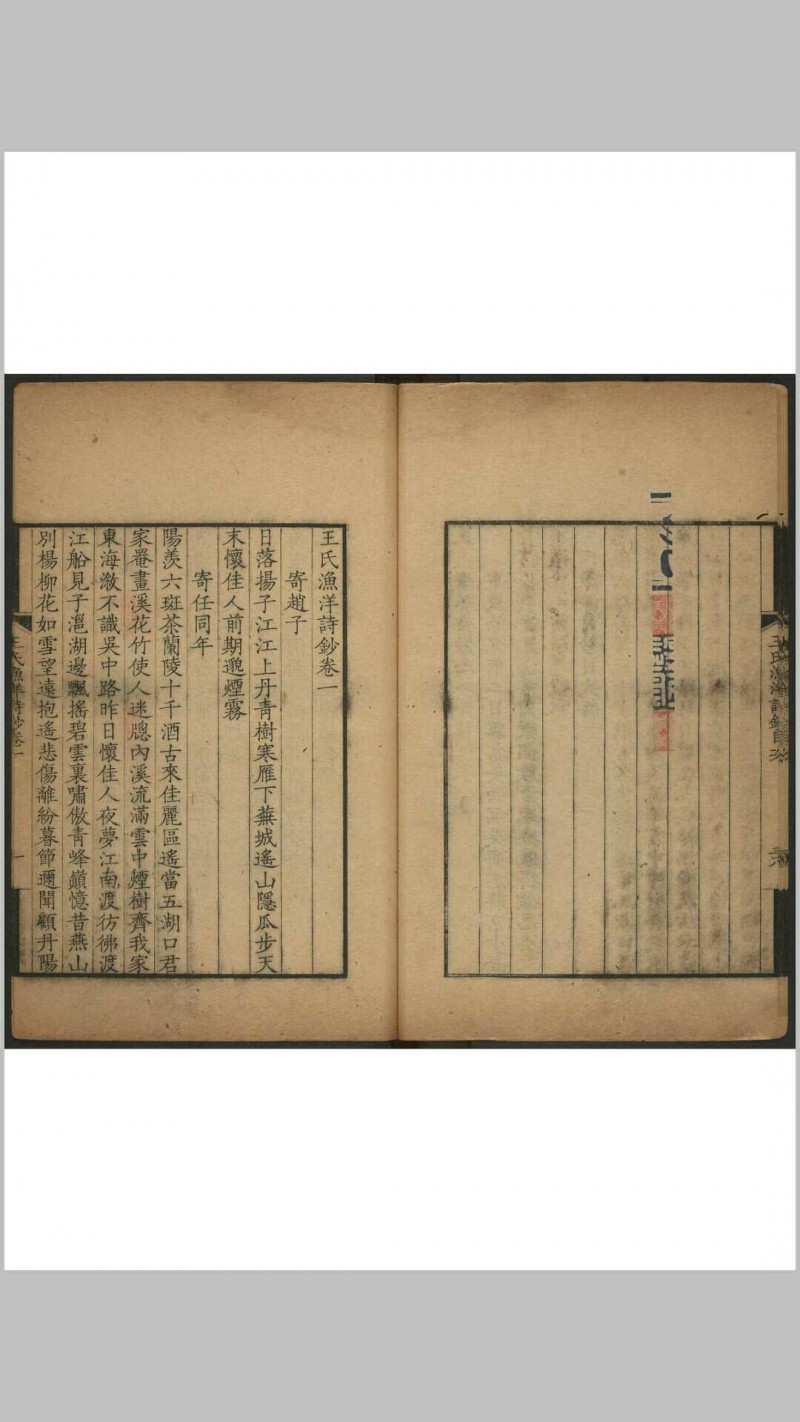 王氏漁洋詩鈔卷一
寄趙子
日落揚子江江上丹青樹寒雁下蕪城遙山隱瓜步天
末懷佳人前期邈煙霧
寄任同年
陽羨六斑茶蘭陵十千酒古來佳麗區遙當五湖口君
家罨畫溪花竹使人迷牕內溪流滿雲中煙樹齊我家
東海澨不識吳中路昨日懷佳人夜夢江南渡彷彿渡
江船見子滆湖邊飄搖碧雲裏嘯傲青峰巔憶昔燕山
別楊柳花如雪望遠抱遙悲傷離紛暮節邇聞顧丹陽
王氏漁洋詩鈔卷一
一